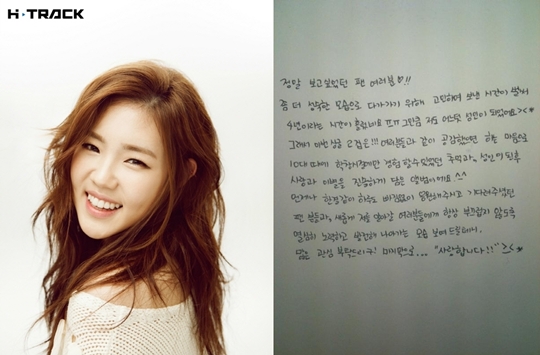 H·TRACK
정말 보고싶었던 팬 여러분♡!!
좀 더 성숙한 모습으로 다가가기 위해 고민하며 보낸 시간이 벌써
4년이라는 시간이 흘렀네요 ㅠㅠ 그만큼 저도 어느덧 성인이 되었어요><*
그래서 이번 싱글 고집은!!! 여러분들과 같이 공감했으면 하는 마음으로
10대 때에 학창시절에만 경험 할 수 있었던 추억과, 성인이 된 후
사랑과 이별을 진솔하게 담은 앨범이에요 ^^
언제나 한결같이 하루도 빠짐없이 응원해주시고 기다려주셨던
팬 분들과, 새롭게 저를 알아갈 여러분들에게 항상 부끄럽지 않도록
열심히 노력하고 발전해 나아가는 모습 보여 드릴테니,
많은 관심 부탁드리구! 마지막으로... "사랑합니다!!" ><*